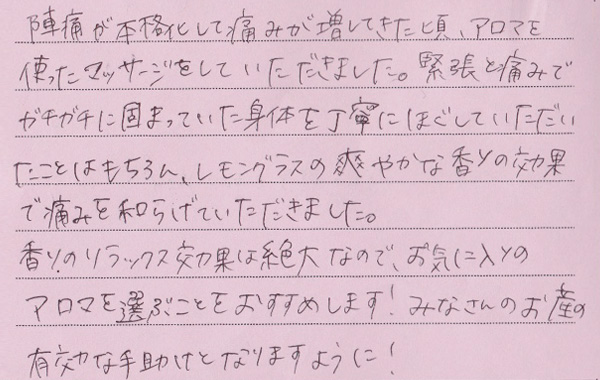 陣痛が本格化して痛みが増してきた頃、アロマを
使ったマッサージをしていただきました。緊張と痛みで
ガチガチに固まっていた身体を丁寧にほぐしていただい
たことはもちろん、レモングラスの爽やかな香りの効果
で痛みを和らげていただきました。
香りのリラックス効果は絶大なので、お気に入りの
アロマを選ぶことをおすすめします！みなさんのお産の
有効な手助けとなりますように！